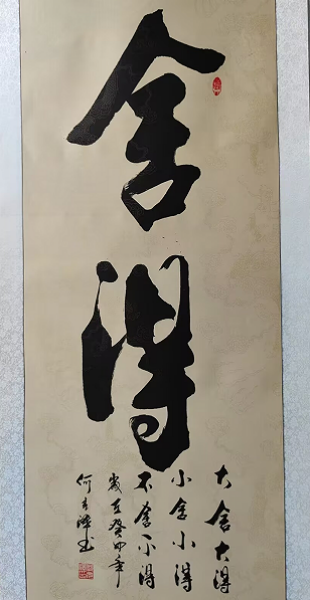 舍得
大舍大得
小舍小得
不舍不得
歲在癸卯年
何
書